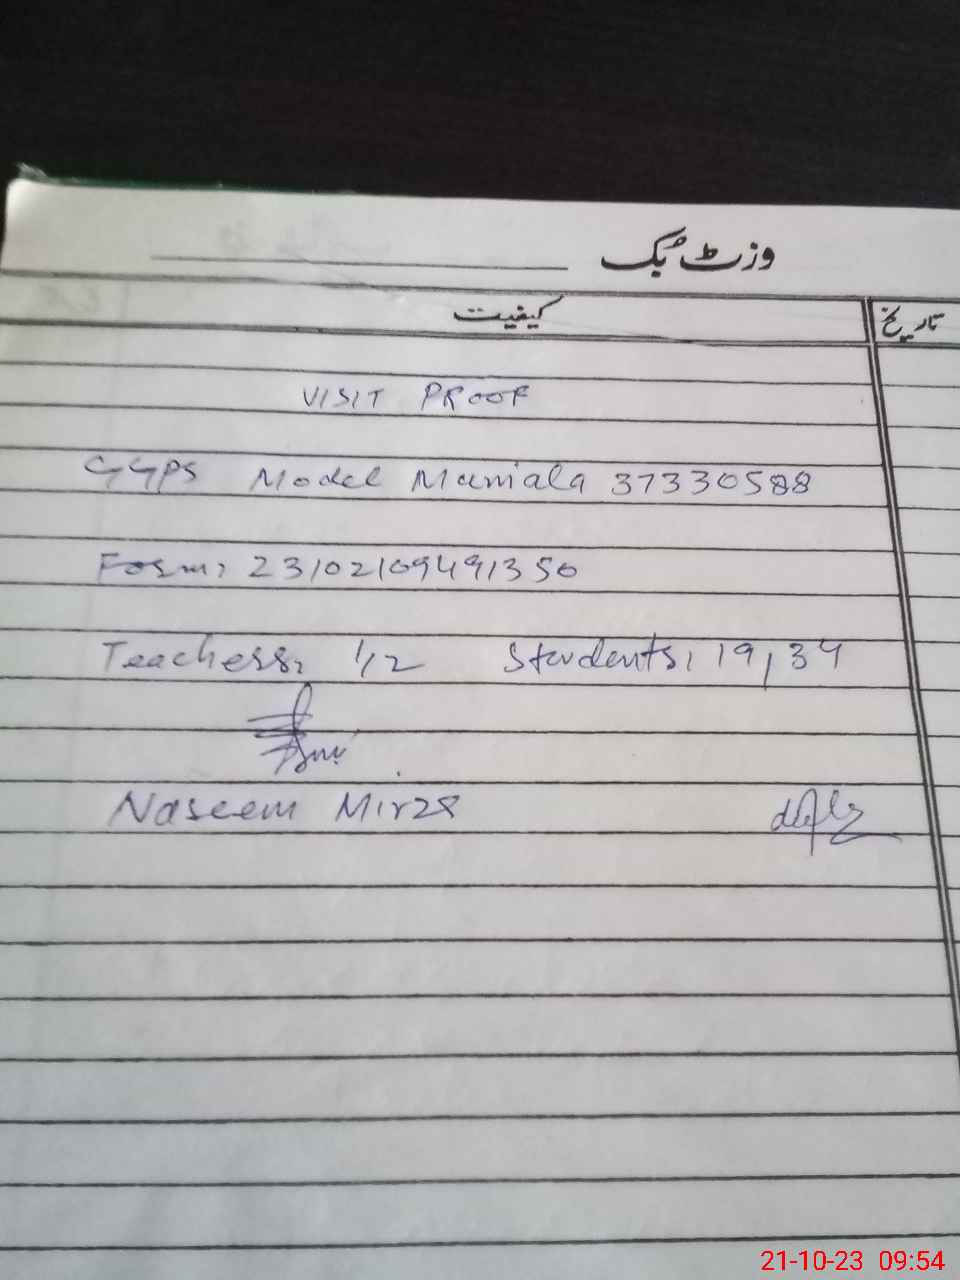 وزٹ بُک
کیفیت تاریخ
VISIT PROOF
GGPS Model Maniala 37330588
Form: 23102109491350
Teachers: 1/2 Students: 19, 34
Naseem Mirza
21-10-23 09:54